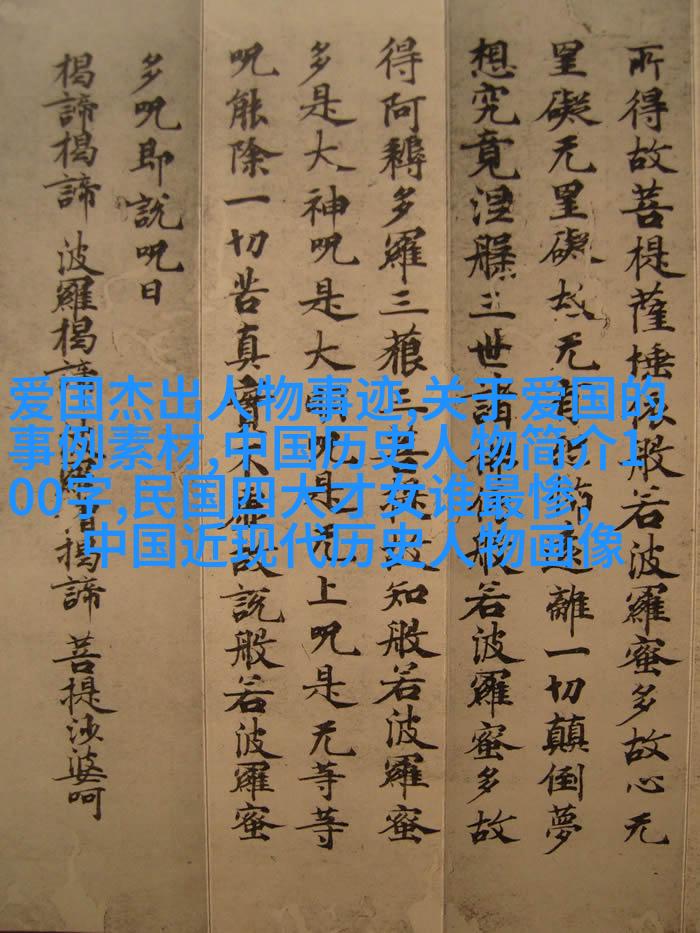 所得故菩提薩埵依般若波羅蜜多故心无
罣礙无罣礙故无有遠離一切顛倒夢
想究竟涅槃三世諸佛依般若波羅蜜多故
得阿耨多羅三藐三菩提故知般若波羅蜜
多是大神呪是大呪是无上呪是无等等
呪能除一切苦真實不虛故說般若波羅蜜
多呪即說呪曰
揭諦揭諦 波羅揭諦 波羅僧揭諦 菩提沙婆呵
爱国杰出人物事迹,关于爱国的
事例素材,中国历史人物简介1
00字,民国四大才女谁最惨,
中国近现代历史人物画像